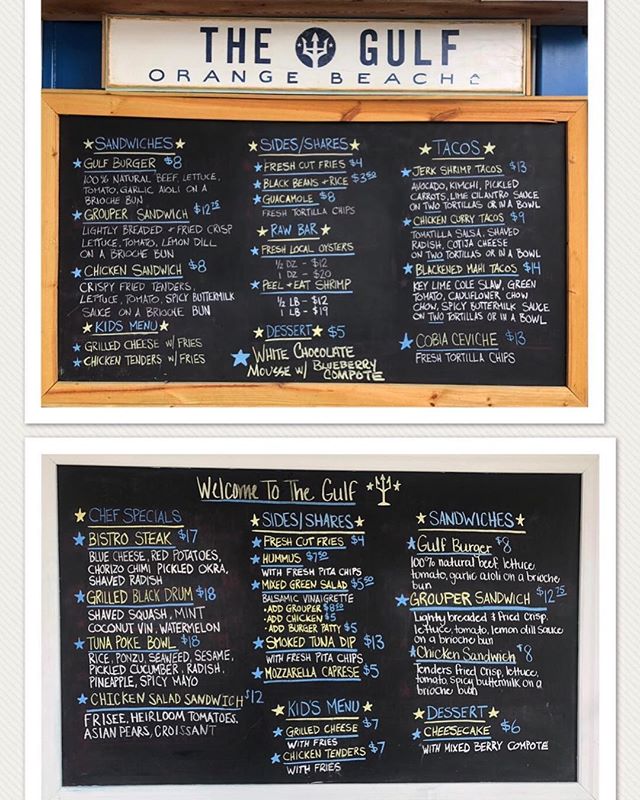 THE GULF
ORANGE BEACH
SANDWICHES
GULF BURGER $8
100% NATURAL BEEF, LETTUCE,
TOMATO, GARLIC AIOLI ON A
BRIOCHE BUN
GROUPER SANDWICH $12.25
LIGHTLY BREADED + FRIED CRISP
LETTUCE, TOMATO, LEMON DILL
ON A BRIOCHE BUN
CHICKEN SANDWICH $8
CRISPY FRIED TENDERS,
LETTUCE, TOMATO, SPICY BUTTERMILK
SAUCE ON A BRIOCHE BUN
KIDS MENU
GRILLED CHEESE W/ FRIES
CHICKEN TENDERS W/ FRIES
SIDES/SHARES
FRESH CUT FRIES $4
BLACK BEANS + RICE $3.50
GUACAMOLE $8
FRESH TORTILLA CHIPS
RAW BAR
FRESH LOCAL OYSTERS
1/2 DZ - $12
1 DZ - $20
PEEL + EAT SHRIMP
1/2 LB - $12
1 LB - $19
DESSERT $5
WHITE CHOCOLATE
MOUSSE W/ BLUEBERRY
COMPOTE
TACOS
JERK SHRIMP TACOS $13
AVOCADO, KIMCHI, PICKLED
CARROTS, LIME CILANTRO SAUCE
ON TWO TORTILLAS OR IN A BOWL
CHICKEN CURRY TACOS $9
TOMATILLA SALSA, SHAVED
RADISH, COTIJA CHEESE
ON TWO TORTILLAS OR IN A BOWL
BLACKENED MAHI TACOS $14
KEY LIME COLE SLAW, GREEN
TOMATO, CAULIFLOWER CHOW
CHOW, SPICY BUTTERMILK SAUCE
ON TWO TORTILLAS OR IN A BOWL
COBIA CEVICHE $13
FRESH TORTILLA CHIPS
Welcome To The Gulf
CHEF SPECIALS
BISTRO STEAK $17
BLUE CHEESE, RED POTATOES,
CHORIZO CHIMI PICKLED OKRA,
SHAVED RADISH
GRILLED BLACK DRUM $18
SHAVED SQUASH, MINT
COCONUT VIN, WATERMELON
TUNA POKE BOWL $18
RICE, PONZU, SEAWEED, SESAME,
PICKLED CUCUMBER, RADISH,
PINEAPPLE, SPICY MAYO
CHICKEN SALAD SANDWICH $12
FRISEE, HEIRLOOM TOMATOES,
ASIAN PEARS, CROISSANT
SIDES/SHARES
FRESH CUT FRIES $4
HUMMUS $7.50
WITH FRESH PITA CHIPS
MIXED GREEN SALAD $5.50
BALSAMIC VINAIGRETTE
• ADD GROUPER $8.50
• ADD CHICKEN $5
• ADD BURGER PATTY $5
SMOKED TUNA DIP $13
WITH FRESH PITA CHIPS
MOZZARELLA CAPRESE $5
KID'S MENU
GRILLED CHEESE $7
WITH FRIES
CHICKEN TENDERS $7
WITH FRIES
SANDWICHES
Gulf Burger $8
100% natural beef lettuce,
tomato, garlic aioli on a brioche
bun
GROUPER SANDWICH $12.25
Lightly breaded & fried crisp,
lettuce, tomato, lemon dill sauce
on a brioche bun
Chicken Sandwich $8
Tenders fried crisp, lettuce,
tomato, spicy buttermilk on a
brioche bun
DESSERT
CHEESECAKE $6
WITH MIXED BERRY COMPOTE